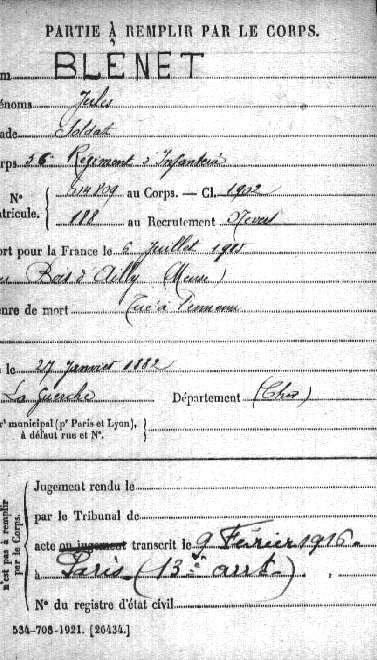 PARTIE À REMPLIR PAR LE CORPS.
om BLÈNET
énoms Jules
ade Soldat
rps 56e Régiment d'Infanterie
N° au Corps. — Cl. 1902
atricule. 188 au Recrutement Nevers
ort pour la France le 6 Juillet 1915
Bois d'Ailly (Meuse)
enre de mort Tué à l'ennemi
le 27 Janvier 1882
La Guerche Département (Cher)
rt municipal (pr Paris et Lyon),
à défaut rue et N°.
n'est pas à remplir
par le Corps.
Jugement rendu le
par le Tribunal de
acte ou jugement transcrit le 9 Février 1916
à Paris (13e arrt.)
N° du registre d'état civil
534-708-1921. [26434.]